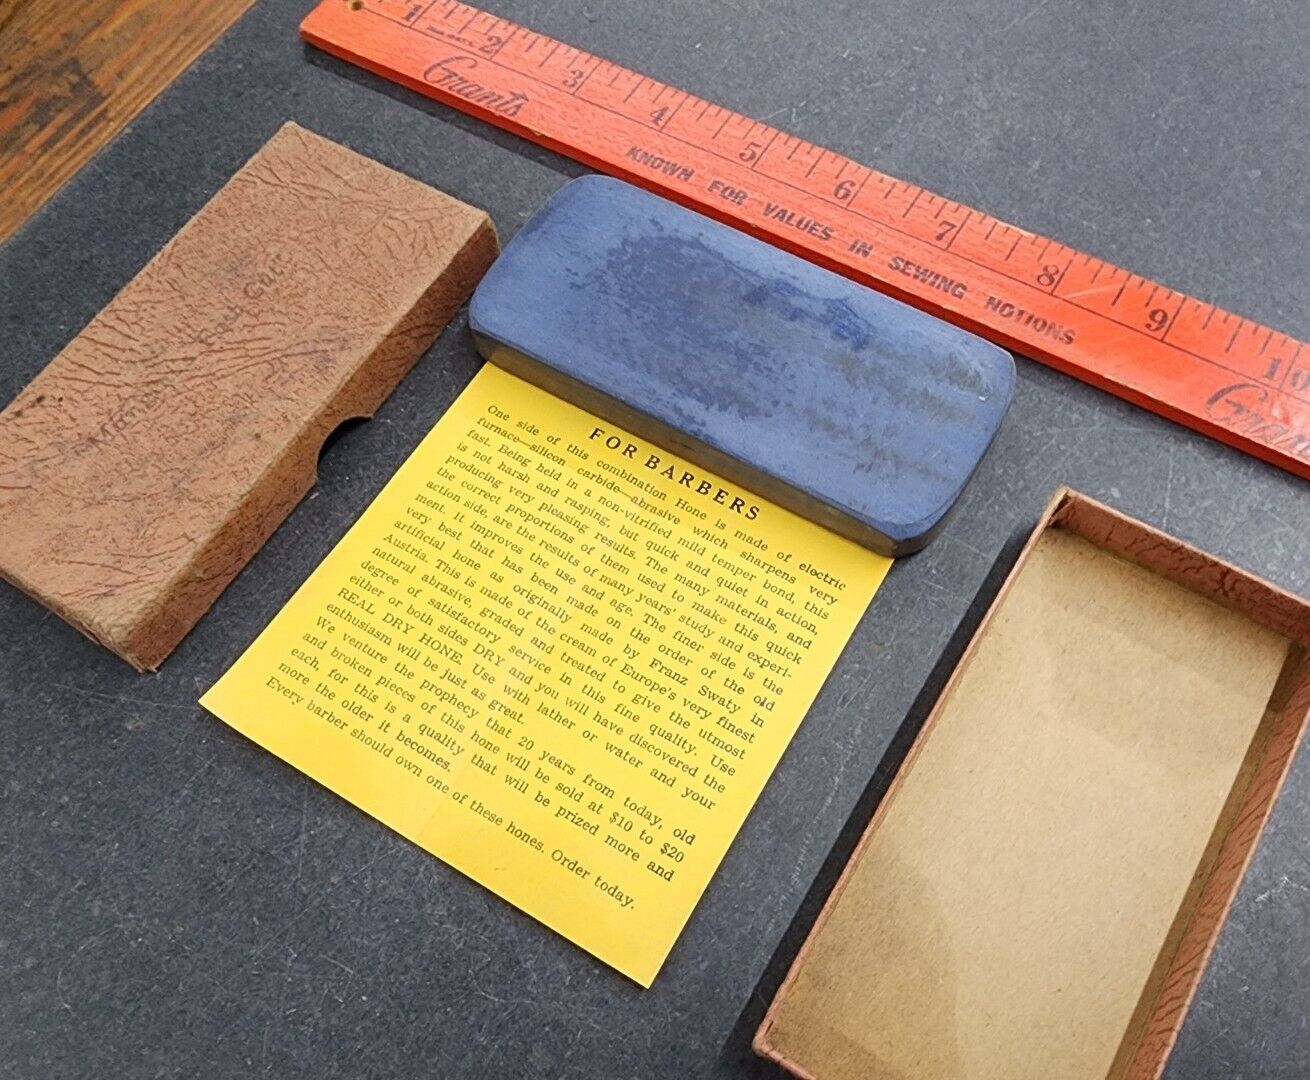 1 2 3 4 5 6 7 8 9 10
Grants
KNOWN FOR VALUES IN SEWING NOTIONS
FOR BARBERS
One side of this combination Hone is made of electric
furnace—silicon carbide—abrasive which sharpens very
fast. Being held in a non-vitrified mild temper bond, this
is not harsh and rasping, but quick and quiet in action,
producing very pleasing results. The many materials, and
the correct proportions of them used to make this quick
action side, are the results of many years' study and experi-
ment. It improves the use and age. The finer side is the
very best that has been made on the order of the old
artificial hone as originally made by Franz Swaty in
Austria. This is made of the cream of Europe's very finest
natural abrasive, graded and treated to give the utmost
degree of satisfactory service in this fine quality. Use
either or both sides DRY and you will have discovered the
REAL DRY HONE. Use with lather or water and your
enthusiasm will be just as great.
We venture the prophecy that 20 years from today, old
and broken pieces of this hone will be sold at $10 to $20
each, for this is a quality that will be prized more and
more the older it becomes.
Every barber should own one of these hones. Order today.